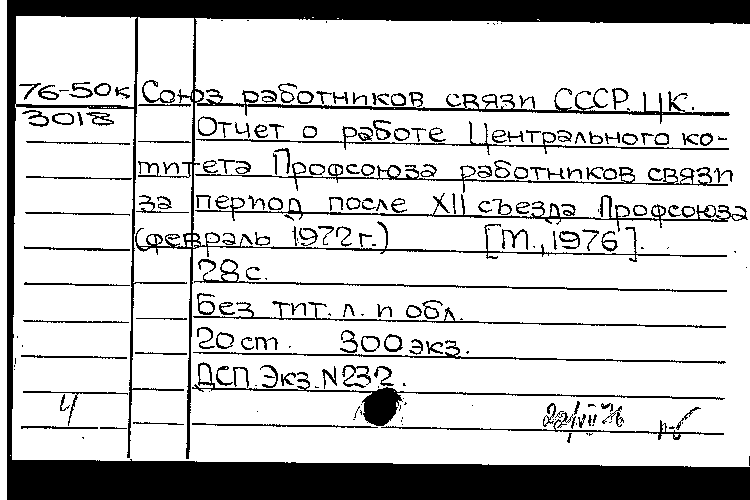 76-50к Союз работников связи СССР. ЦК.
3018 Отчет о работе Центрального ко-
митета Профсоюза работников связи
за период после XII съезда Профсоюза
(февраль 1972г.) [М., 1976].
28с.
Без тит. л. и обл.
20см. 300экз.
ДСП. Экз. N232.
4 22/VII 76